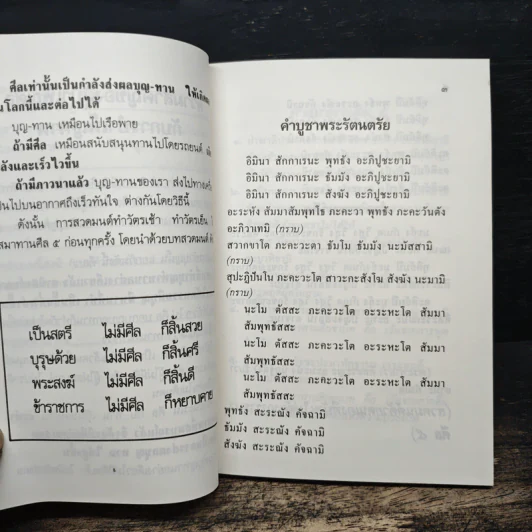 ศีลเท่านั้นเป็นกำลังส่งผลบุญ-ทาน ให้
นโลกนี้และต่อไปได้
บุญ-ทาน เหมือนไปเรือพาย
ถ้ามีศีล เหมือนสนับสนุนทานไปโดยรถยนต์
ลังและเร็วไวขึ้น
ถ้ามีภาวนาแล้ว บุญ-ทานของเรา ส่งไปทาง
ป็นไปบนอากาศถึงเร็วทันใจ ต่างกันโดยวิธีนี้
ดังนั้น การสวดมนต์ทำวัตรเช้า ทำวัตรเย็น
สมาทานศีล ๕ ก่อนทุกครั้ง โดยนำด้วยบทสวดมนต์
เป็นสตรี ไม่มีศีล ก็สิ้นสวย
บุรุษด้วย ไม่มีศีล ก็สิ้นศรี
พระสงฆ์ ไม่มีศีล ก็สิ้นดี
ข้าราชการ ไม่มีศีล ก็หยาบคาย
๓
คำบูชาพระรัตนตรัย
อิมินา สักกาเรนะ พุทธัง อะภิปูชะยามิ
อิมินา สักกาเรนะ ธัมมัง อะภิปูชะยามิ
อิมินา สักกาเรนะ สังฆัง อะภิปูชะยามิ
อะระหัง สัมมาสัมพุทโธ ภะคะวา พุทธัง ภะคะวันตัง
อะภิวาเทมิ (กราบ)
สวากขาโต ภะคะวะตา ธัมโม ธัมมัง นะมัสสามิ
(กราบ)
สุปะฏิปันโน ภะคะวะโต สาวะกะสังโฆ สังฆัง นะมามิ
(กราบ)
นะโม ตัสสะ ภะคะวะโต อะระหะโต สัมมา
สัมพุทธัสสะ
นะโม ตัสสะ ภะคะวะโต อะระหะโต สัมมา
สัมพุทธัสสะ
นะโม ตัสสะ ภะคะวะโต อะระหะโต สัมมา
สัมพุทธัสสะ
พุทธัง สะระณัง คัจฉามิ
ธัมมัง สะระณัง คัจฉามิ
สังฆัง สะระณัง คัจฉามิ